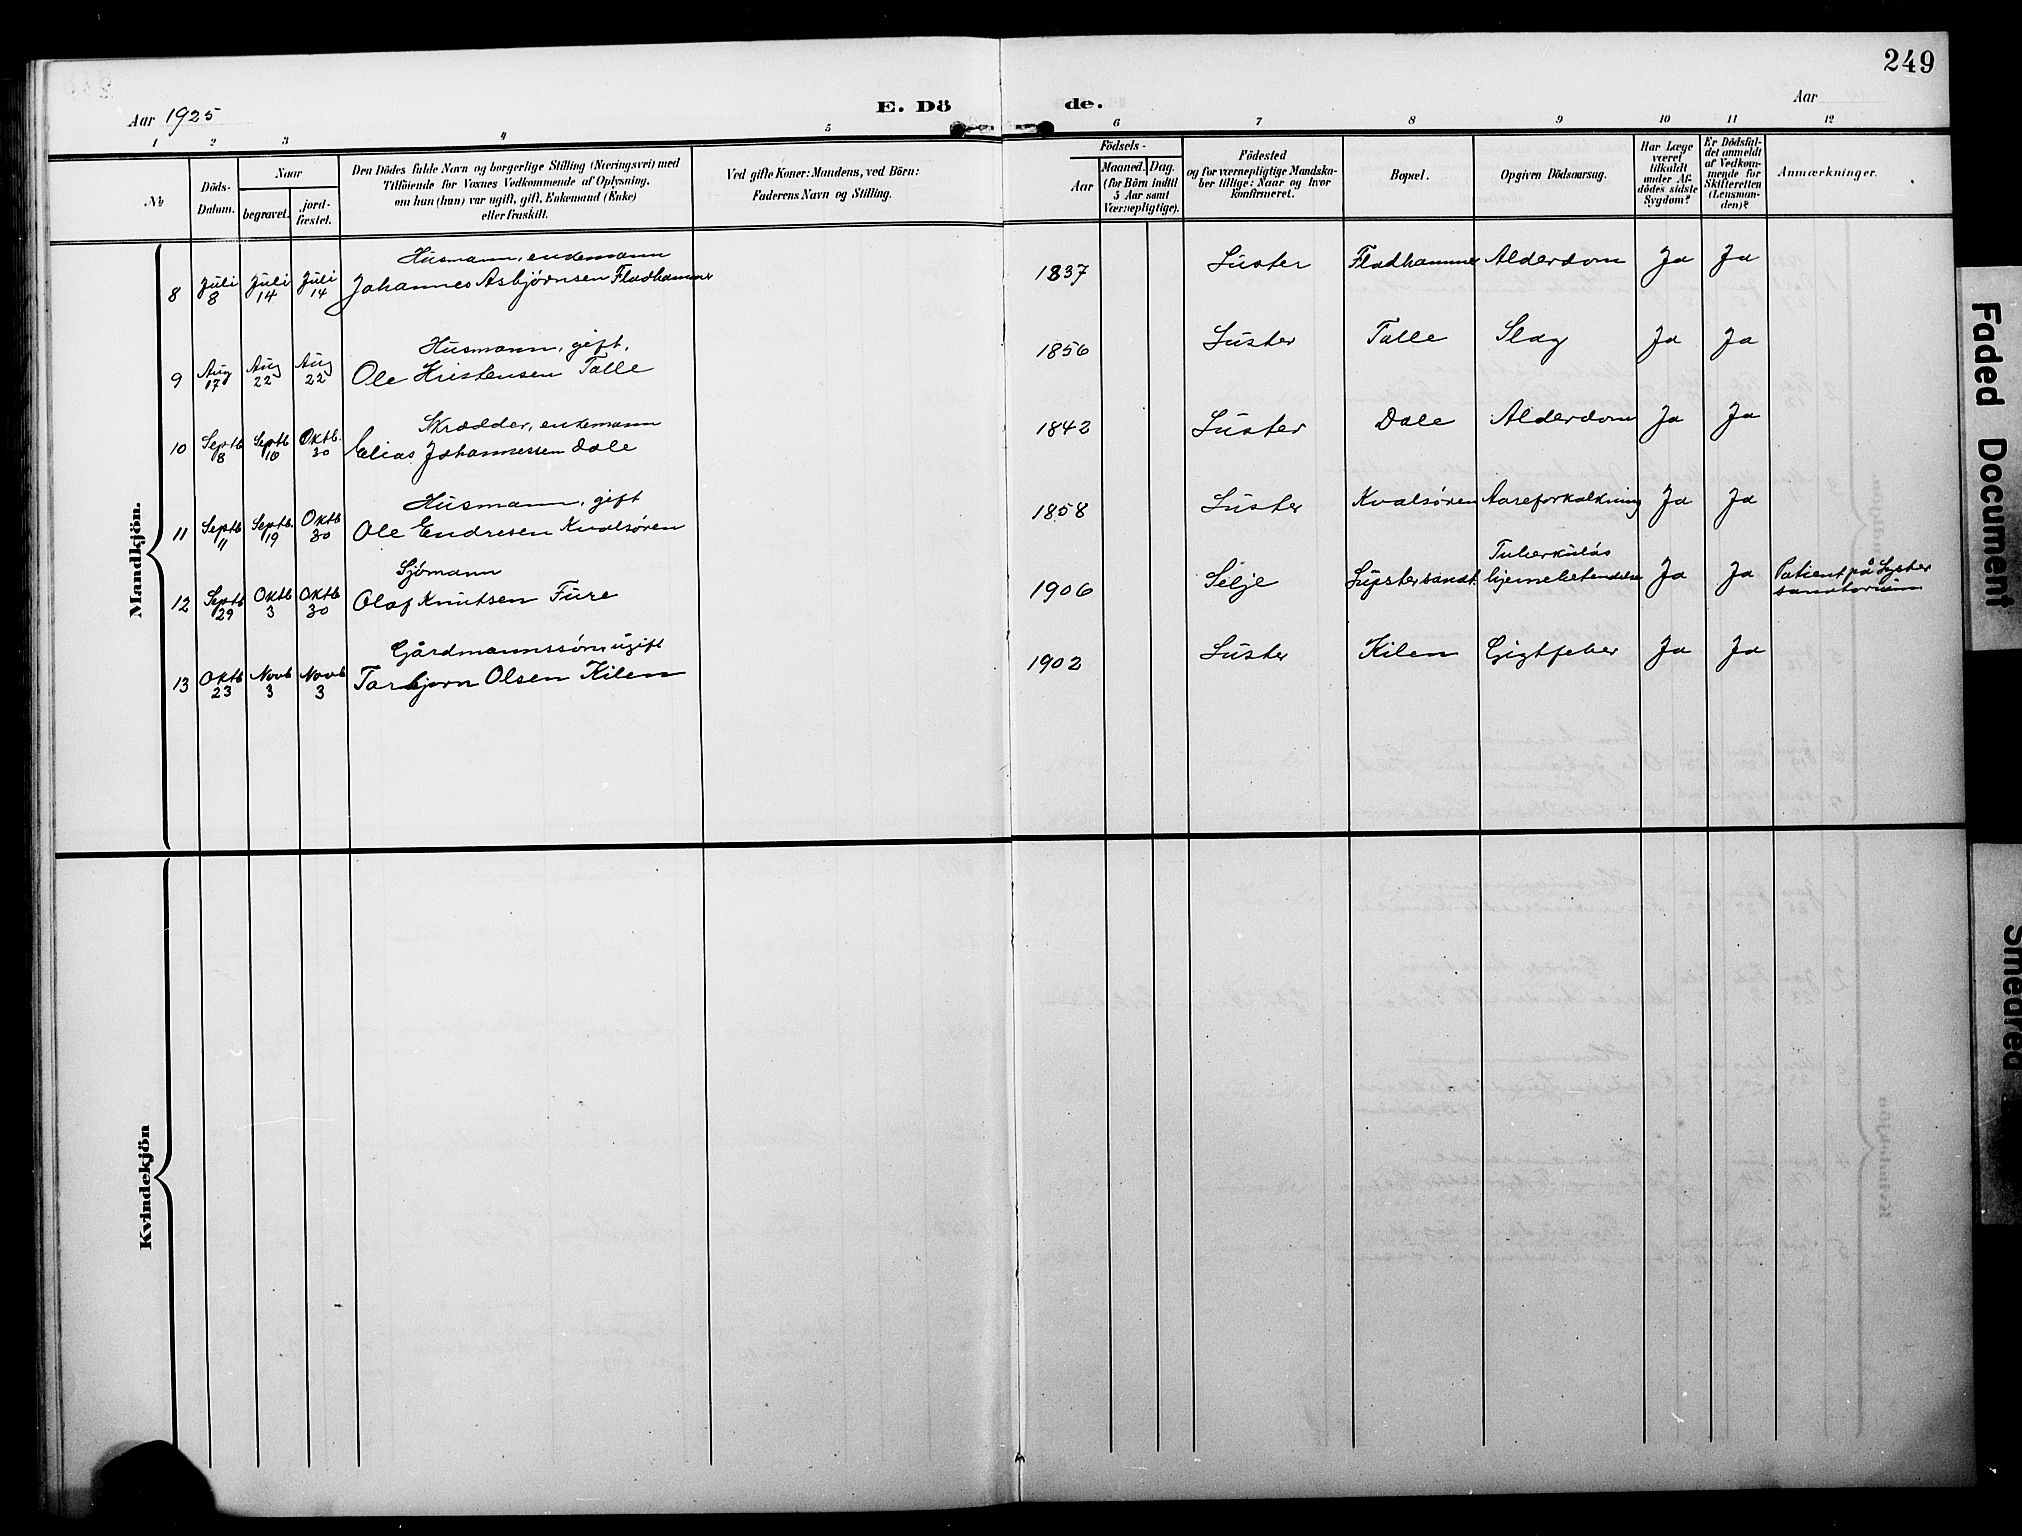 249
Aar 1925
E. Dö de.
Aar
1 2 3 4 5 6 7 8 9 10 11 12
№
Döds-
Datum.
Naar
begravet.
jord-
fæstet.
Den Dödes fulde Navn og borgerlige Stilling (Næringsvei) med
Tilföiende for Voxnes Vedkommende af Oplysning,
om han (hun) var ugift, gift, Enkemand (Enke)
eller fraskilt.
Ved gifte Koner: Mandens, ved Börn:
Faderens Navn og Stilling.
Födsels-
Aar
Maaned. Dag.
(for Börn indtil
5 Aar samt
Værnepligtige).
Födested
og for værnepligtige Mandska-
ber tillige: Naar og hvor
konfirmeret.
Bopæl.
Opgiven Dödsaarsag.
Har Læge
været
tilkaldt
under Af-
dödes sidste
Sygdom?
Er Dödsfal-
det anmeldt
af Vedkom-
mende for
Skifteretten
(Lensman-
den)?
Anmærkninger.
Mandkjön.
Husmann, enkemann
8 Juli 8 Juli 14 Juli 14 Johannes Asbjørnsen Fladhammer 1837 Luster Fladhammer Alderdom Ja Ja
Husmann, gift,
9 Aug 17 Aug 22 Aug 22 Ole Kristensen Talle 1856 Luster Talle Slag Ja Ja
Skrædder, enkemann
10 Septb 8 Septb 16 Oktb. 30 Elias Johannessen Dale 1842 Luster Dale Alderdom Ja Ja
Husmann, gift
11 Septb 11 Septb. 19 Oktb 30 Ole Endresen Kvalsøren 1858 Luster Kvalsøren Aareforkalkning Ja Ja
Sjømann
12 Septb 29 Oktb 3 Oktb 30 Olaf Knutsen Fure 1906 Selje Lystersandt. Tuberkuløs hjernebetendelse Ja Ja Patient på Lyster
sanatorium
Gårdmannssøn ugift
13 Oktb 23 Novb 3 Novb 3 Torbjørn Olsen Kilen 1902 Luster Kilen Gigtfeber Ja Ja
Kvindekjön
Faded Document
Smeared